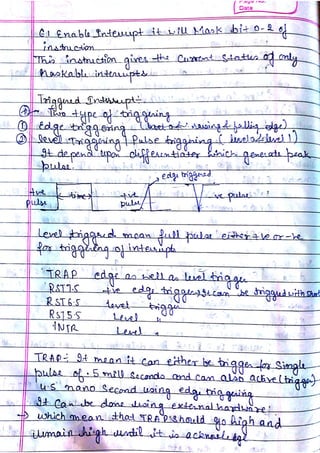 Date
EI Enable Interrupt it will Mask bit 0-2 of
instruction
This instruction gives the Current Status of only
Maskable interrupts
Triggered Interrupt:-
Two type of triggering
① Edge triggering (
② level Triggering | Pulse triggering (
It depend upon differentiator which generate peak
pulse.
edge triggered
+ve
pulse
time
+ve
pulse
ve pulse
Level triggered mean full pulse either +ve or -ve
for triggering of interrupts
TRAP edge as well as level trigger
RST7.5 +ve edge trigger, It can be trigged with
RST6.5 level trigger
RST5.5 Level "
INTR Level "
TRAP:- It mean it can either be trigger for single
pulse of .5 mili seconds and can also active (trigger)
4.5 nano second using edge triggering
It can be done using external hardware!
→ which mean that TRAP should go high and
remain high until it is acknowledge